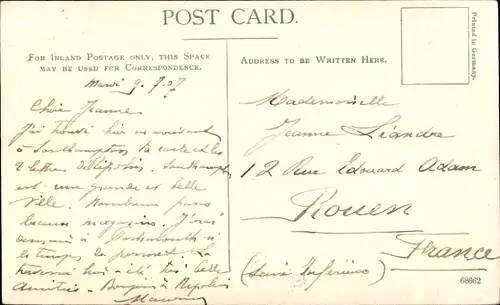 POST CARD.
FOR INLAND POSTAGE ONLY, THIS SPACE
MAY BE USED FOR CORRESPONDENCE.
ADDRESS TO BE WRITTEN HERE.
Printed in Germany.
Mardi 9.7.07
Chère Jeanne
J'ai trouvé hier en arrivant
à Southampton ta carte et les
2 lettres de Southampton
est une grande et belle
ville. Nombreux parcs
beaux magasins. J'irai
à Portsmouth si
le temps le permet. La
hier a été très belle
Amitiés Bonjour à
Mademoiselle
Jeanne Léandre
12 Rue Edouard Adam
Rouen
France
(Seine Inférieure)
68662